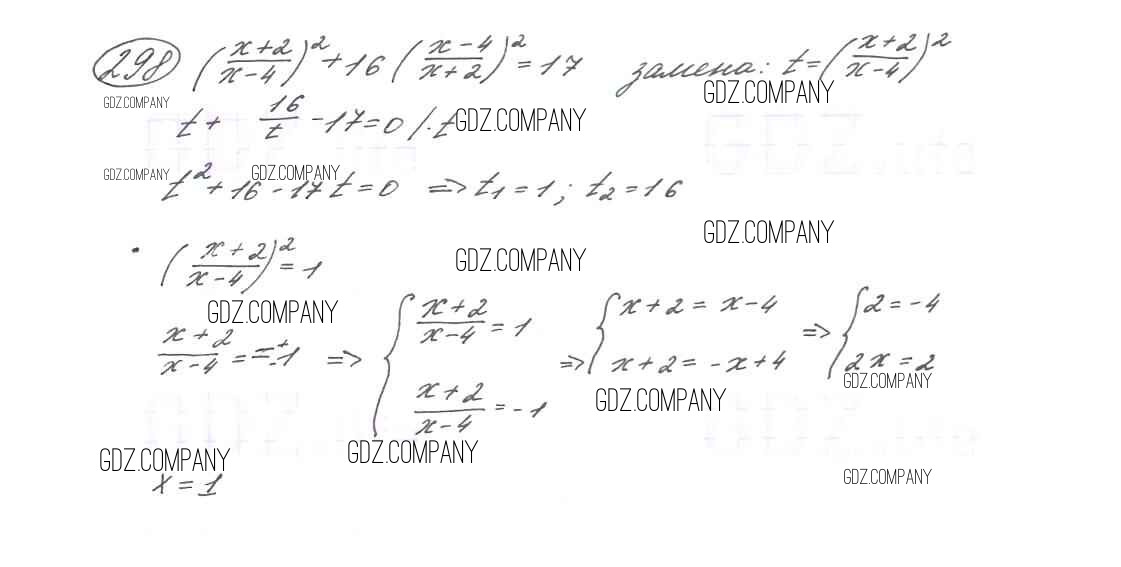 298 ((x+2)/(x-4))² + 16 ((x-4)/(x+2))² = 17 замена: t = ((x+2)/(x-4))²
GDZ.COMPANY GDZ.COMPANY
t + 16/t - 17 = 0 / · t GDZ.COMPANY
GDZ.COMPANY GDZ.COMPANY
t² + 16 - 17t = 0 => t₁ = 1; t₂ = 16
GDZ.COMPANY
· ((x+2)/(x-4))² = 1 GDZ.COMPANY
GDZ.COMPANY
(x+2)/(x-4) = ±1 => { (x+2)/(x-4) = 1 => { x+2 = x-4 => { 2 = -4
(x+2)/(x-4) = -1 x+2 = -x+4 2x = 2
GDZ.COMPANY GDZ.COMPANY
GDZ.COMPANY GDZ.COMPANY
GDZ.COMPANY
x = 1